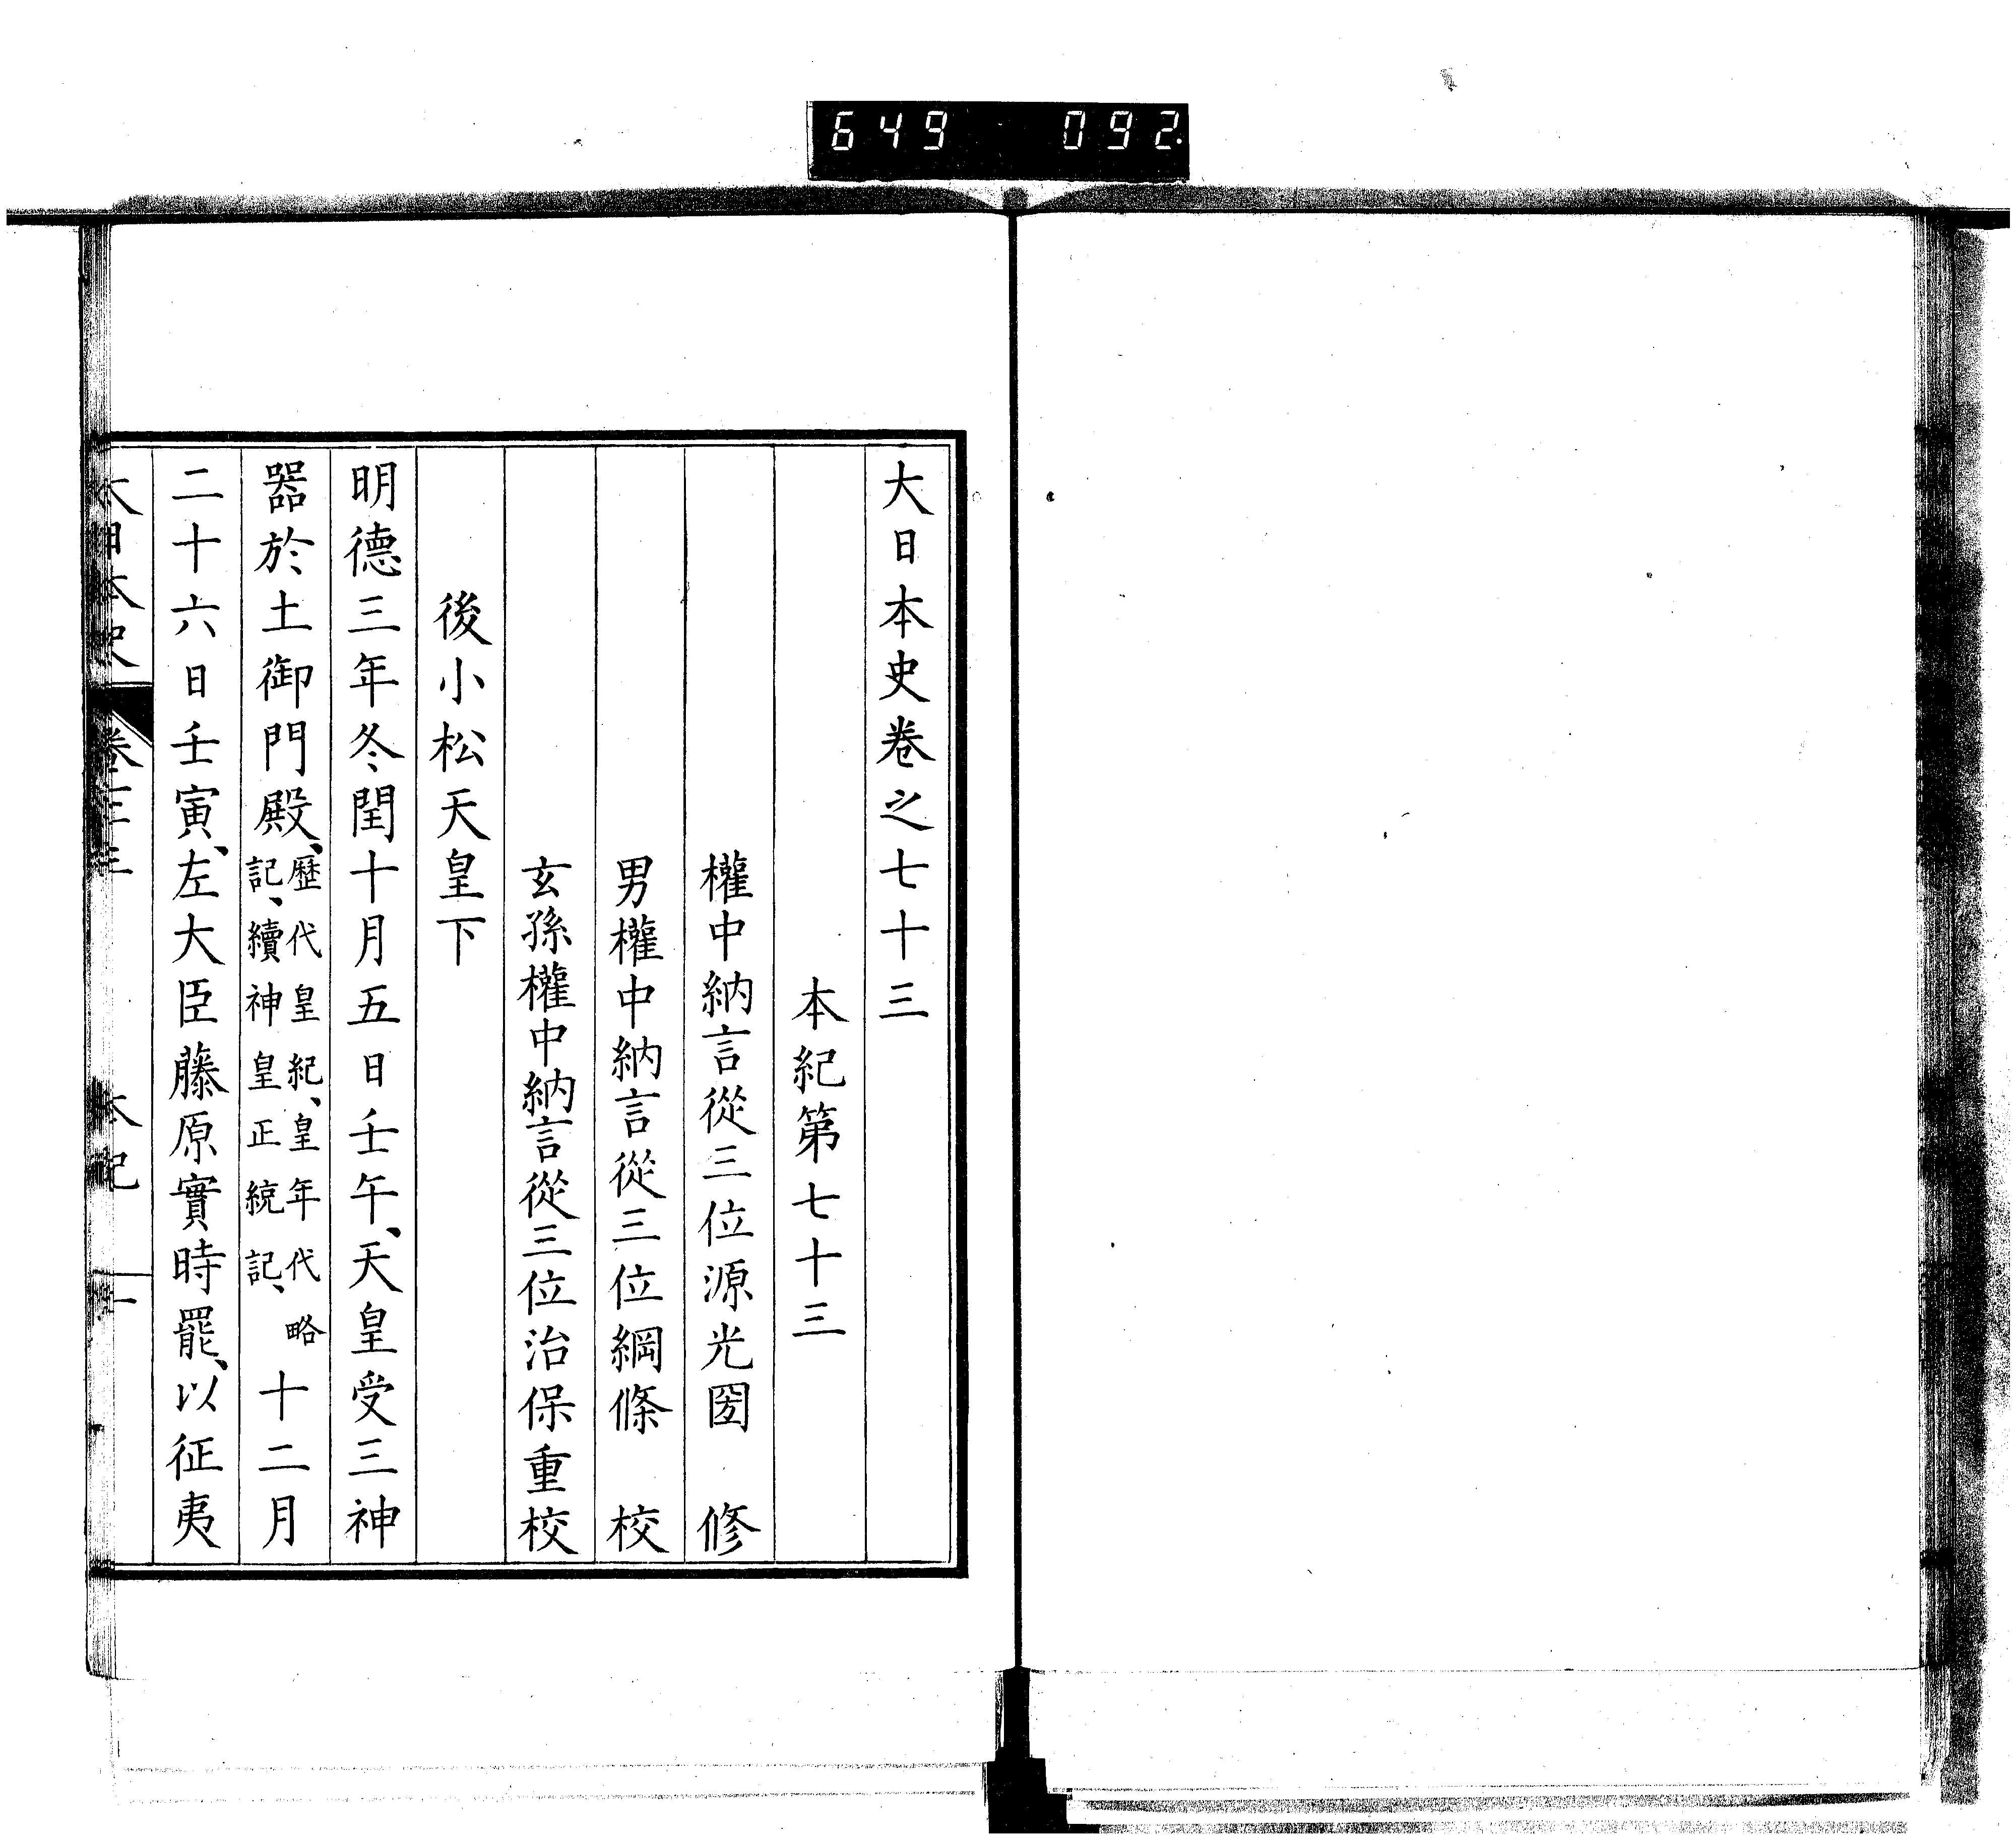 649 092
大日本史卷之七十三
本紀第七十三
權中納言從三位源光圀 修
男權中納言從三位綱條 校
玄孫權中納言從三位治保重校
後小松天皇下
明德三年冬閏十月五日壬午、天皇受三神
器於土御門殿、歷代皇紀、皇年代略記、續神皇正統記、十二月
二十六日壬寅、左大臣藤原實時罷、以征夷
大日本史 卷 本紀 一